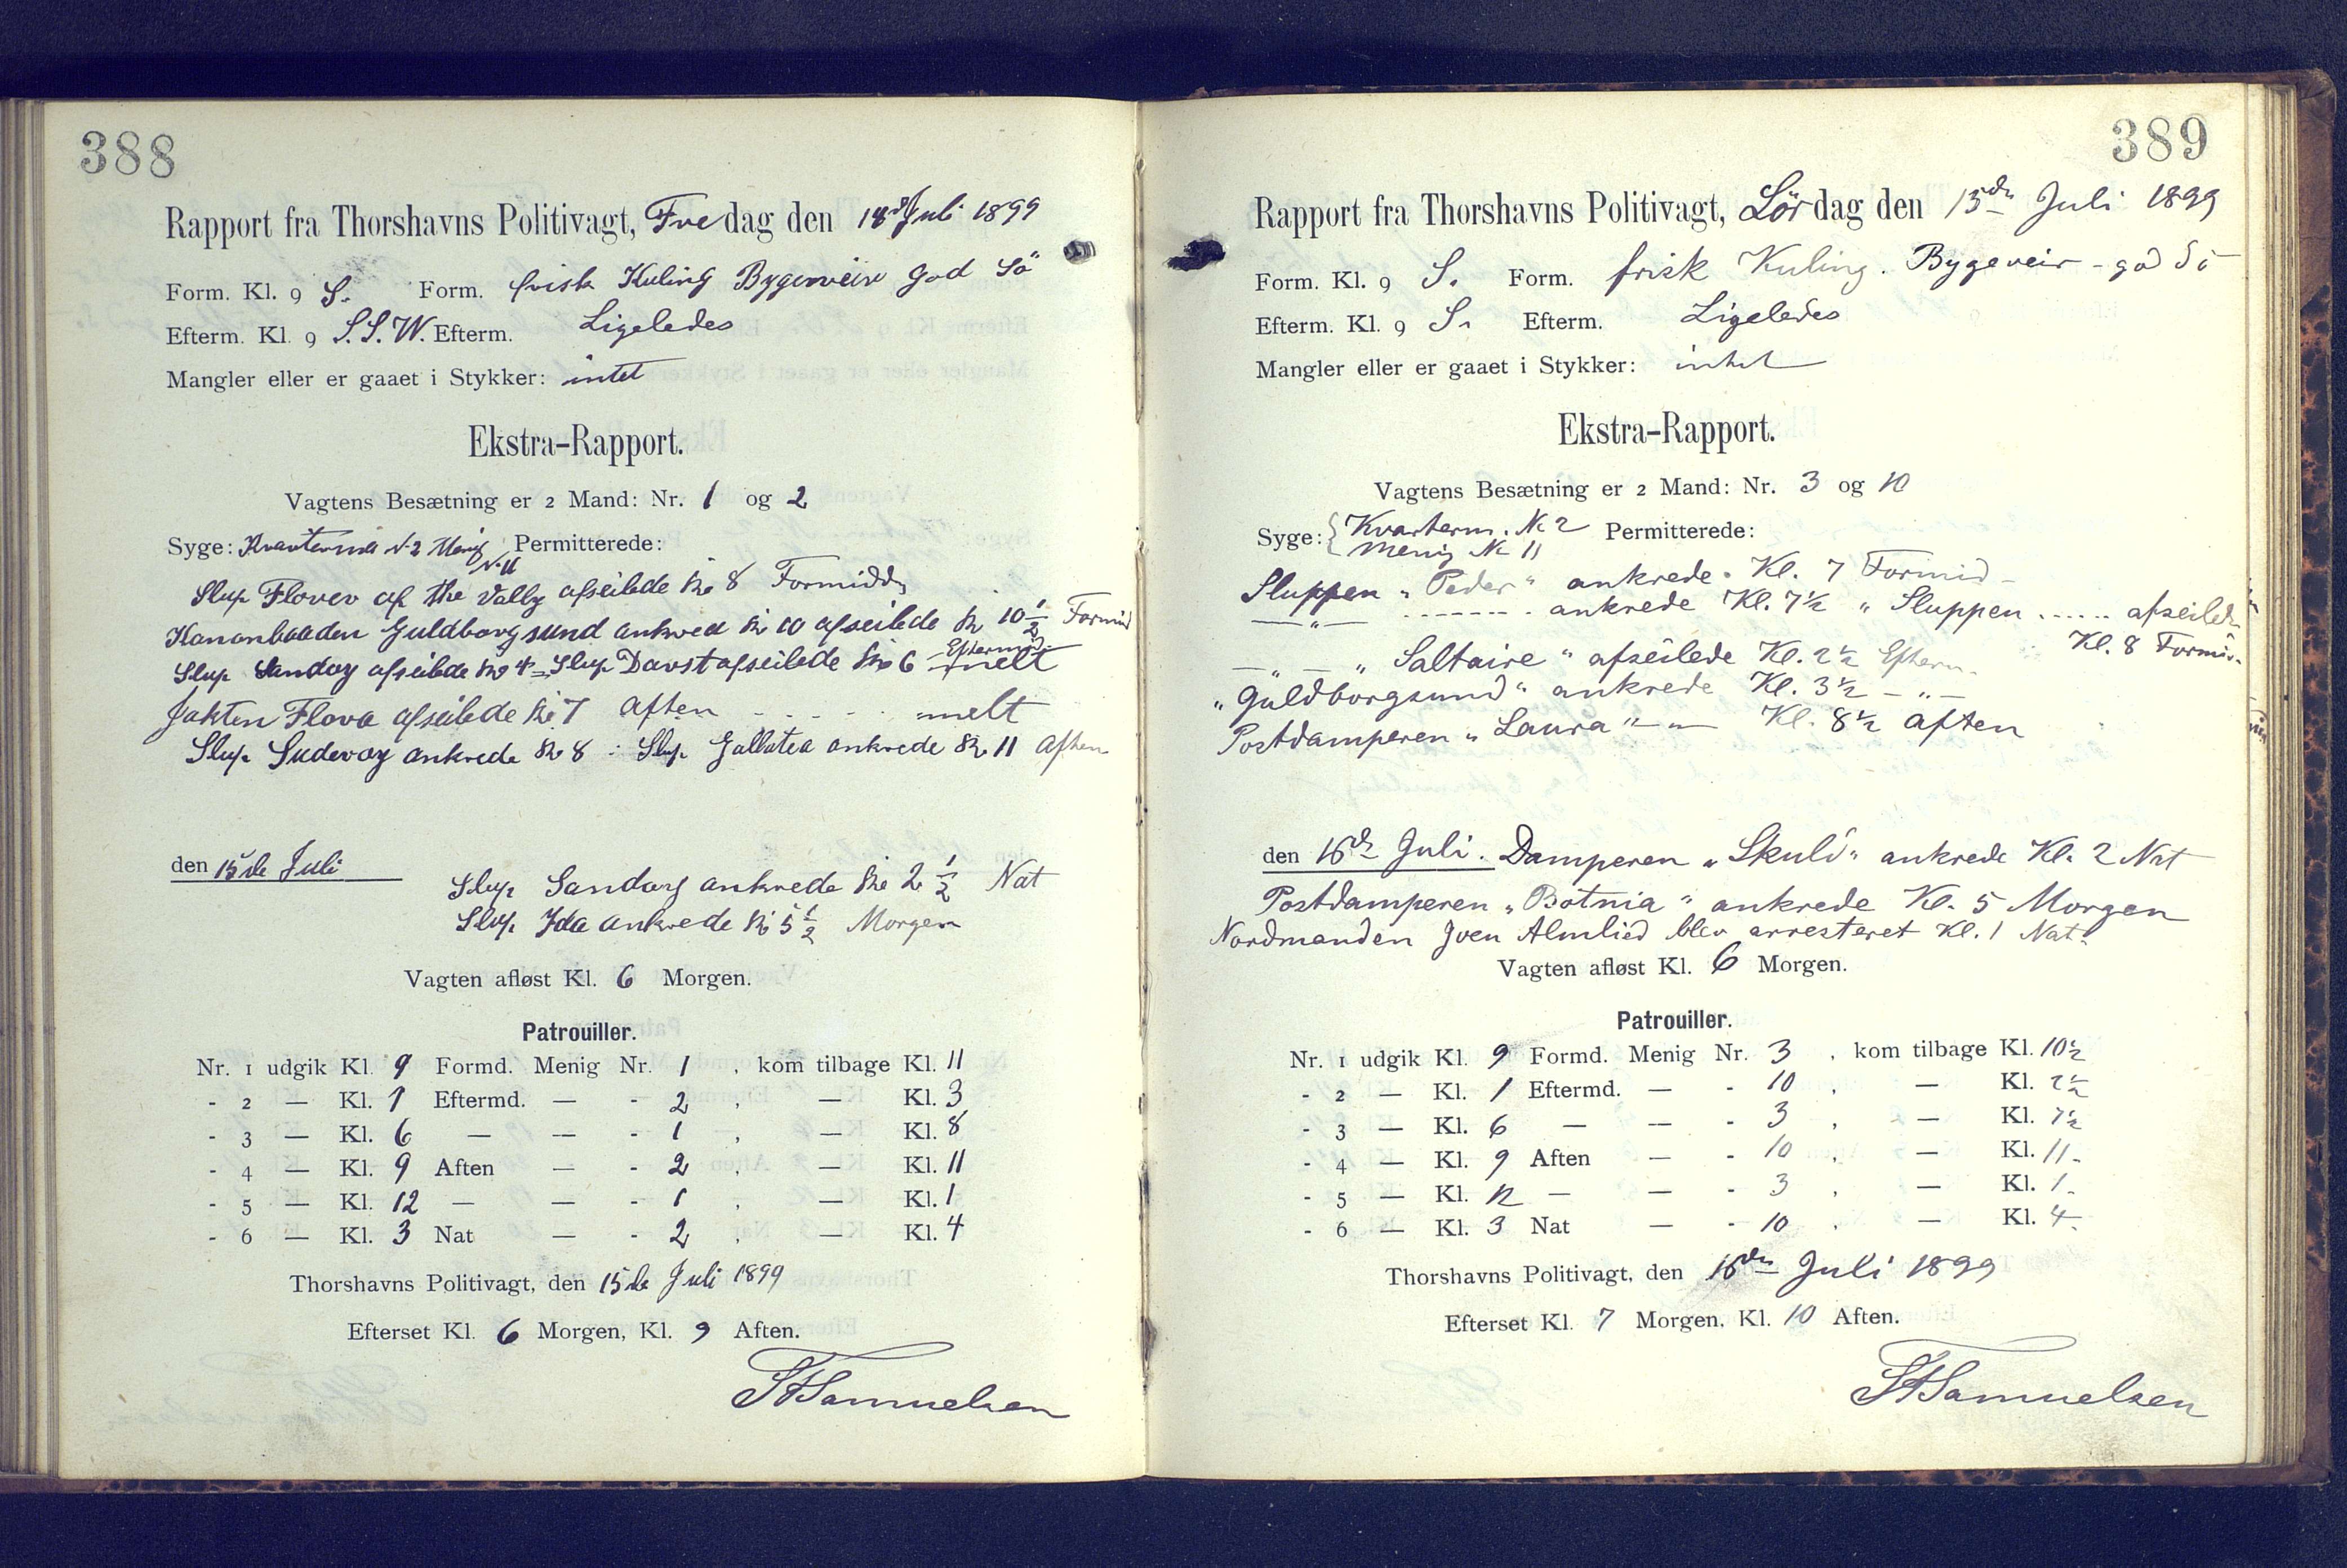 388
Rapport fra Thorshavns Politivagt, Fredag den 14de Juli 1899
Form. Kl. 9 S. Form. frisk Kuling Bygeveir god Sö
Efterm. Kl. 9 S.S.W. Efterm. Ligeledes
Mangler eller er gaaet i Stykker: intet
Ekstra-Rapport.
Vagtens Besætning er 2 Mand: Nr. 1 og 2
Syge: N. 2 Menig N. 11 Permitterede:
Slup Flover of the Vally afseilede Kl 8 Formidd
Kanonbaaden Guldborgsund ankred Kl 10 afseilede Kl 10 1/2 Formid
Slup Sandoy afseilede Kl 4 = Slup Davst afseilede Kl 6 Eftermd
Jakten Flora afseilede Kl 7 Aften
Slup Suderoy ankrede Kl 8 : Slup Gallatea ankrede Kl 11 Aften
den 15de Juli
Slup Sandoy ankrede Kl 2 1/2 Nat
Slup Ida ankrede Kl 5 1/2 Morgen
Vagten afløst Kl. 6 Morgen.
Patrouiller.
Nr. 1 udgik Kl. 9 Formd. Menig Nr. 1 , kom tilbage Kl. 11
- 2 — Kl. 1 Eftermd. — - 2 , — Kl. 3
- 3 — Kl. 6 — — - 1 , — Kl. 8
- 4 — Kl. 9 Aften — - 2 , — Kl. 11
- 5 — Kl. 12 — — - 1 , — Kl. 1
- 6 — Kl. 3 Nat — - 2 , — Kl. 4
Thorshavns Politivagt, den 15de Juli 1899
Efterset Kl. 6 Morgen, Kl. 9 Aften.
Samuelsen
389
Rapport fra Thorshavns Politivagt, Lördag den 15de Juli 1899
Form. Kl. 9 S. Form. frisk Kuling. Bygeveir - god Sö
Efterm. Kl. 9 S. Efterm. Ligeledes
Mangler eller er gaaet i Stykker: intet
Ekstra-Rapport.
Vagtens Besætning er 2 Mand: Nr. 3 og 10
Syge: { Kvarterm. No 2 Permitterede:
Menig No 11
Sluppen „Peder“ ankrede. Kl. 7 Formid -
— „ — ....... ankrede Kl. 7 1/2 „ Sluppen ..... afseilede
Kl. 8 Formid.
— „ — „Saltaire“ afseilede Kl. 2 1/2 Efterm
„Guldborgsund“ ankrede Kl. 3 1/2 — „ —
Postdamperen „Laura“ — „ — Kl. 8 1/2 Aften
den 16de Juli. Damperen „Skuld“ ankrede Kl. 2 Nat
Postdamperen „Botnia“ ankrede Kl. 5 Morgen
Nordmanden Iven Almlied blev arresteret Kl. 1 Nat.
Vagten afløst Kl. 6 Morgen.
Patrouiller.
Nr. 1 udgik Kl. 9 Formd. Menig Nr. 3 , kom tilbage Kl. 10 1/2
- 2 — Kl. 1 Eftermd. — - 10 , — Kl. 2 1/2
- 3 — Kl. 6 — — - 3 , — Kl. 7 1/2
- 4 — Kl. 9 Aften — - 10 , — Kl. 11 -
- 5 — Kl. 12 — — - 3 , — Kl. 1 -
- 6 — Kl. 3 Nat — - 10 , — Kl. 4 -
Thorshavns Politivagt, den 16de Juli 1899
Efterset Kl. 7 Morgen, Kl. 10 Aften.
Samuelsen